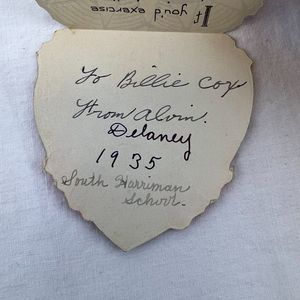 If you'd exercise
To Billie Cox
From Alvin.
Delaney
1935
South Harriman
School.